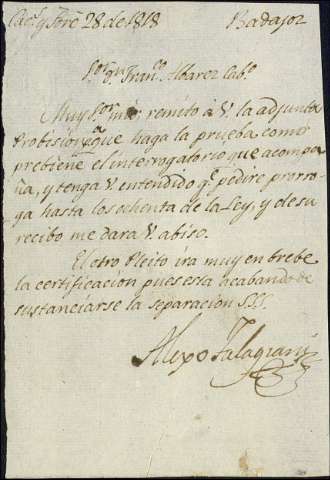 Cac.s y Nov.e 28 de 1818 Badajoz
S.or D.n Fran.co Albarez Cab.o
Muy S.or mio: remito á V. la adjunta
Probision p.a que haga la prueba como
prebiene el interrogatorio que acompa
ña, y tenga V. entendido q.e pedire prorro
ga hasta los ochenta de la Ley, y de su
recibo me dara V. abiso.
El otro Pleito ira muy en brebe
la certificacion pues esta acabando de
sustanciarse la separacion
Alexo Talagrani